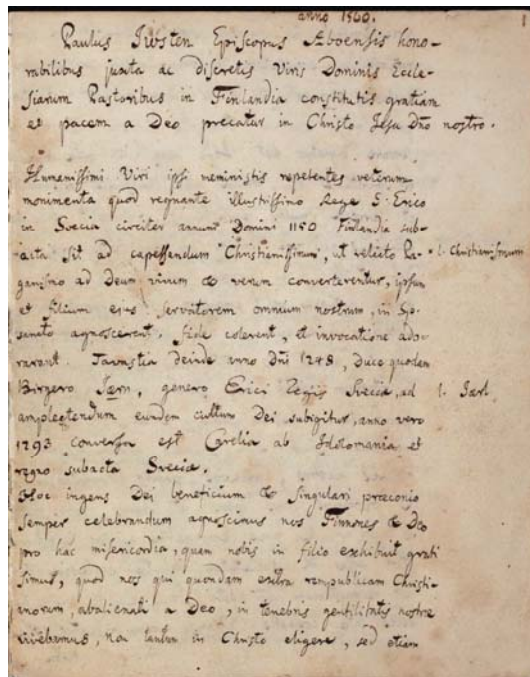 anno 1560.
Paulus Justen Episcopus Aboensis hono-
rabilibus juxta ac discretis Viris Dominis Eccle-
siarum Pastoribus in Finlandia constitutis gratiam
et pacem a Deo precatur in Christo Jesu Dño nostro.
Humanissimi Viri ipsi meministis repetentes veterum
monimenta quod regnante illustrissimo Rege S. Erico
in Svecia circiter annum Domini 1150 Finlandia sub-
acta sit ad capessendum Christianissimum, ut relicto Pa- l. Christianismum
ganismo ad Deum vivum & verum converterentur, ipsum
et filium ejus servatorem omnium nostrum, in Sp.
sancto agnoscerent, fide colerent, et invocatione ado-
rarent. Tavastia deinde anno Dñi 1248, Duce quodam
Birgero Jærn, genero Erici Regis Svecia, ad l. Jærl
amplectendum eundem cultum Dei subigitur, anno vero
1293 conversa est Carelia ab Idolomania et
regno subacta Svecia.
Hoc ingens Dei beneficium & singulari præconio
semper celebrandum agnoscimus nos Finnones & Deo
pro hac misericordia, quam nobis in filio exhibuit grati
simus, quod nos qui quondam extra rempublicam Christi-
anorum, abalienati a Deo, in tenebris gentilitatis nostræ
vivebamus, non tantum in Christo eligere, sed etiam